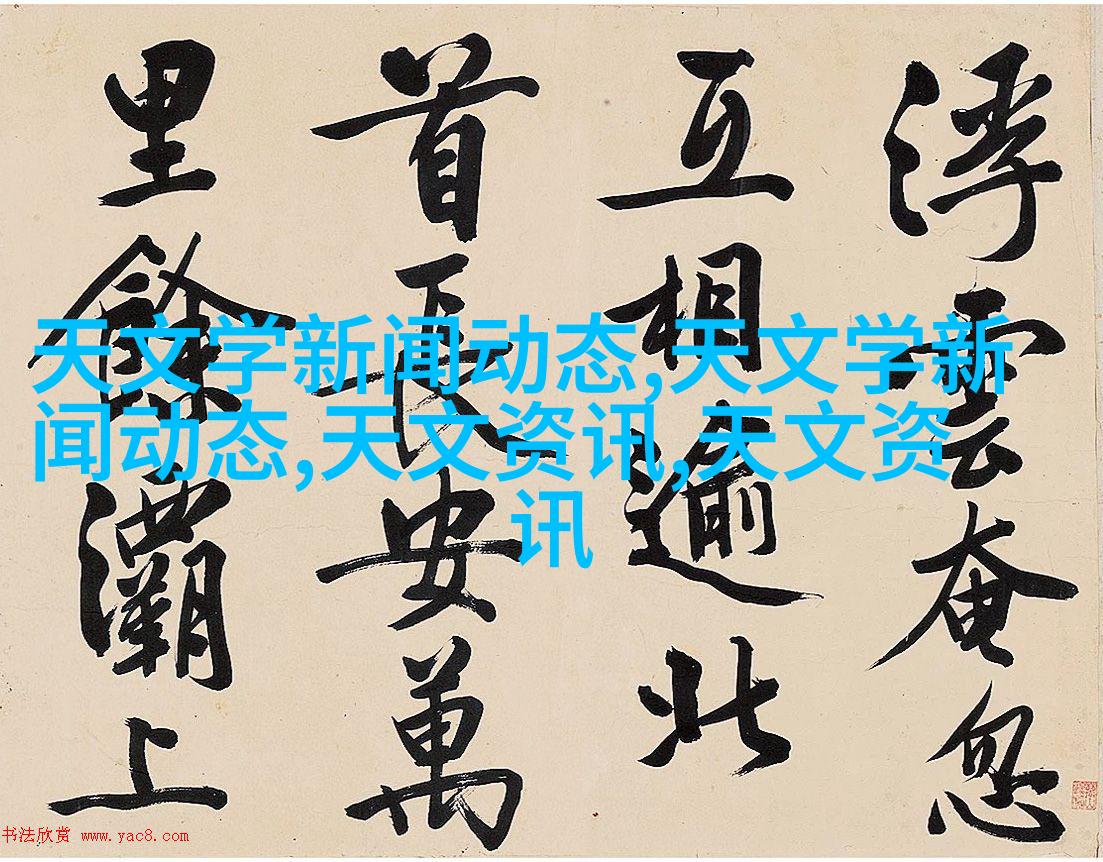 浮雲奄忽
互相逾北
首長安萬
里餘灞上
天文学新闻动态,天文学新
闻动态,天文资讯,天文资
讯
书法欣赏 www.yac8.com